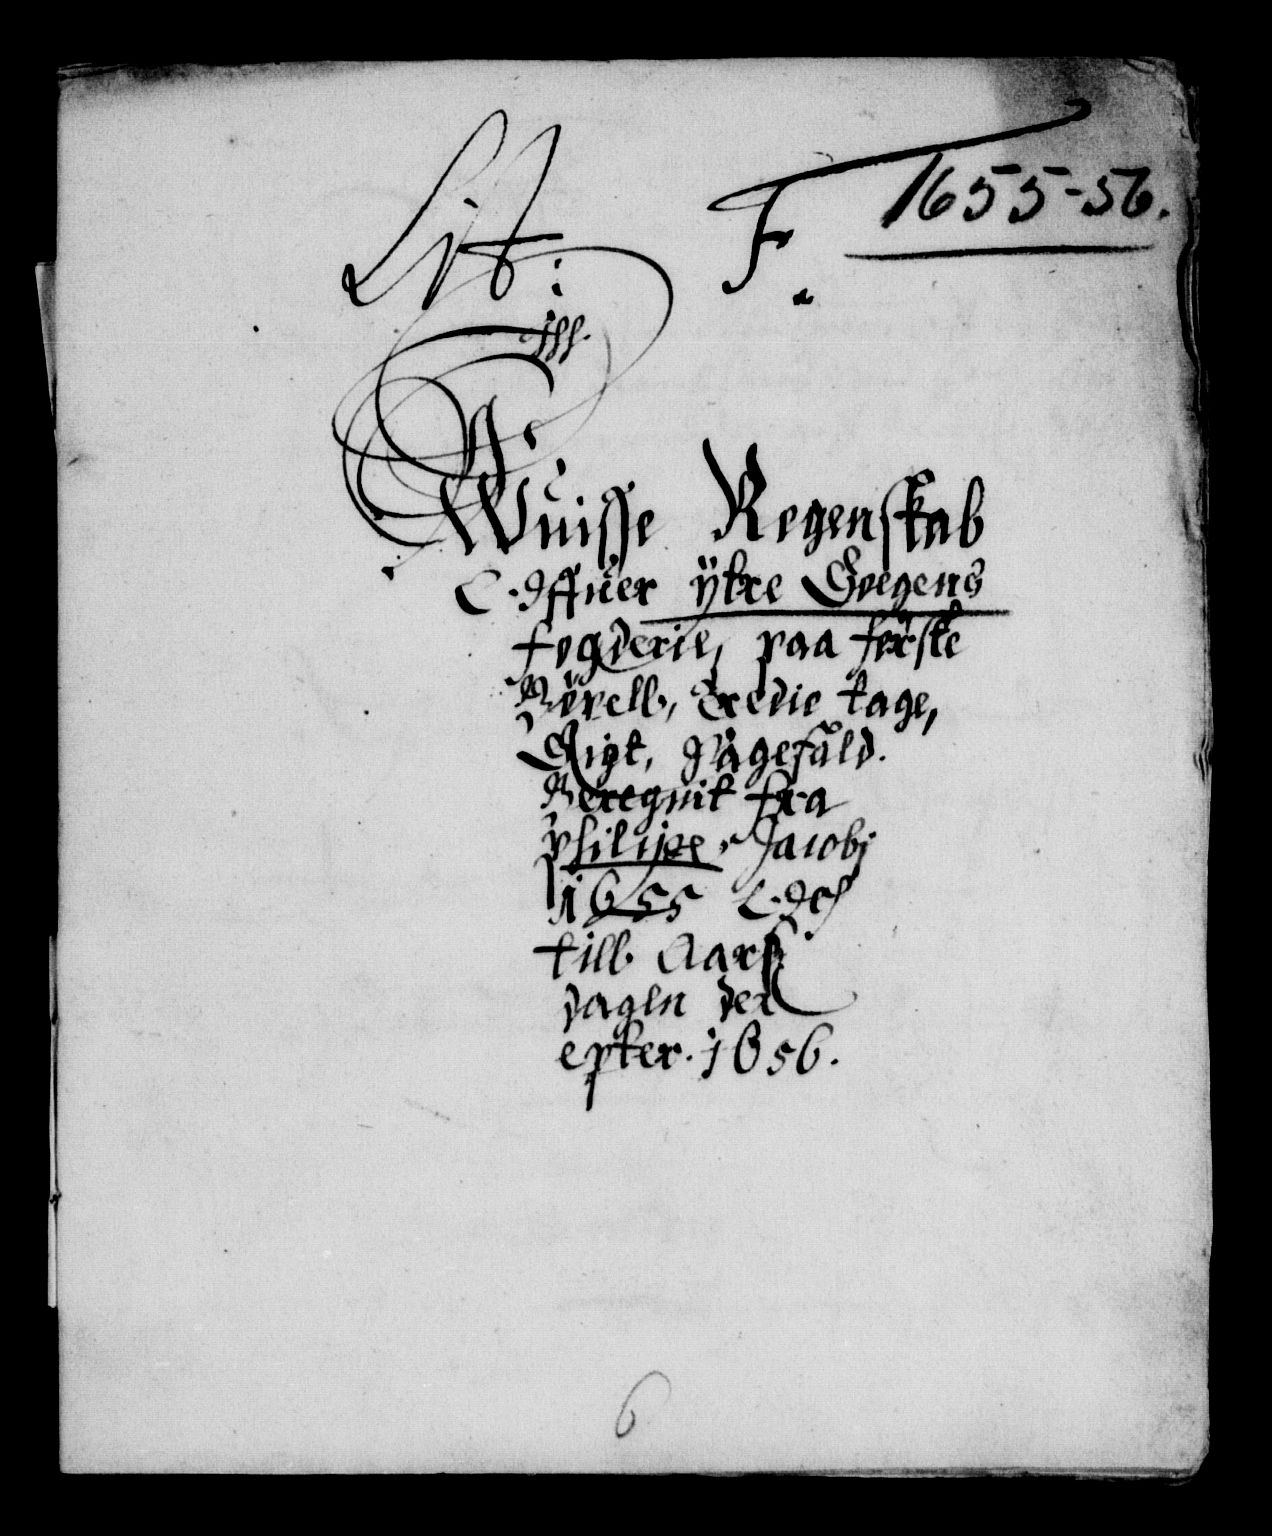 Lit: F. 1655-56.
Wuisse Regenskab
Offuer ÿtre Sogens
fogderie, paa første
Bÿxell, Tredie tage,
Rigt, Sagefald.
Beregnit fra
Philippe, Jacobj
1655 Och
till Aars
dagen der
epter. 1656.
6